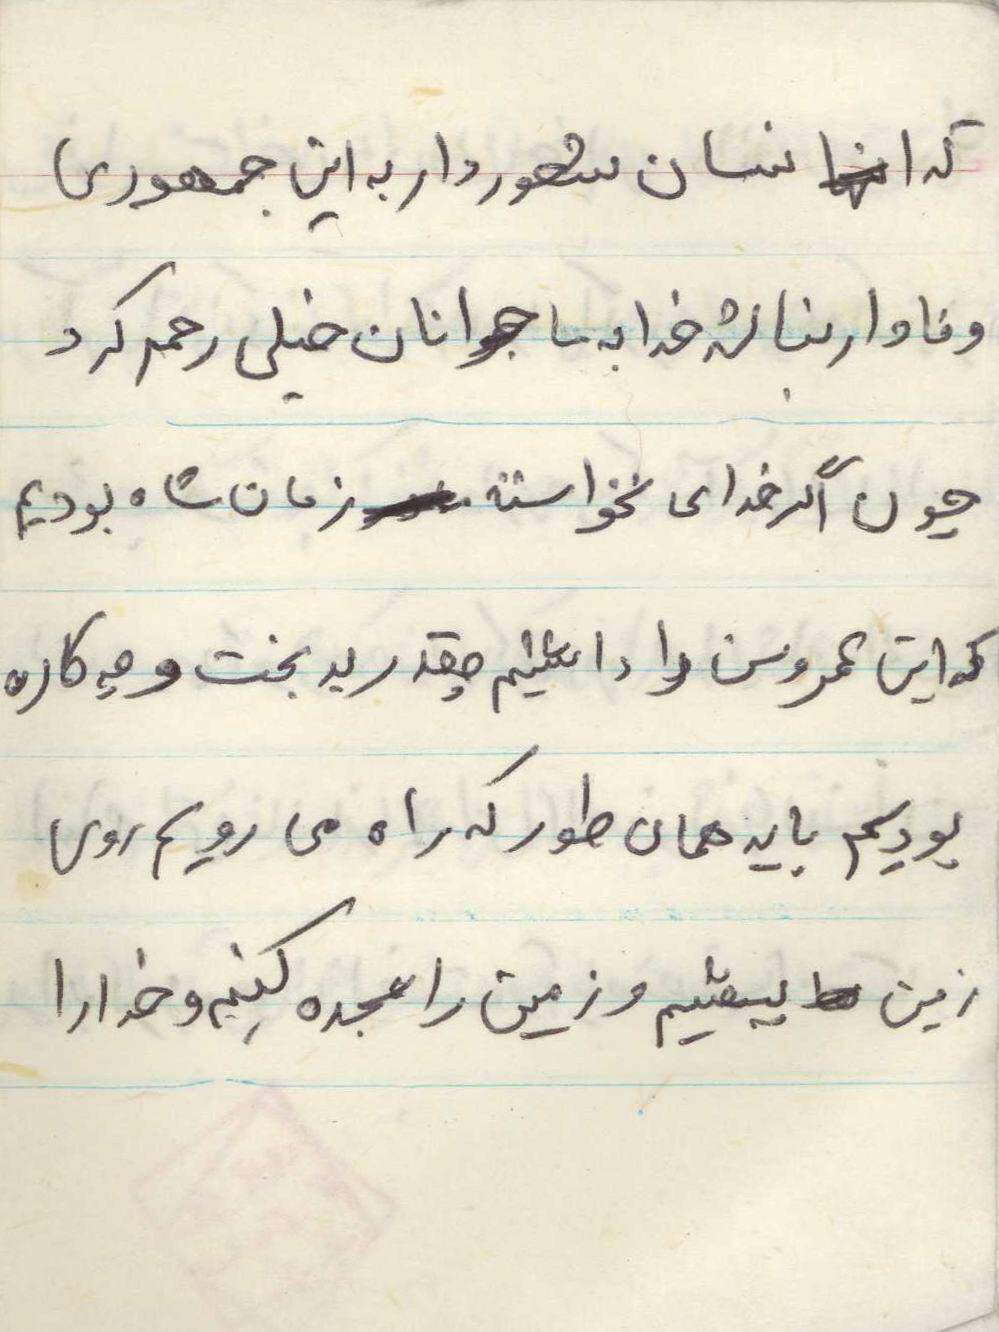 که انسان شعور دار به این جمهوری
وفادار نباشه خدا به ما جوانان خیلی رحم کرد
چون اگر خدای نخواسته زمان شاه بودیم
که این عمر وسن را داشتیم چقدر بدبخت و چه کاره
بودیم باید همان طور که راه می رویم روی
زمین بیفتیم و زمین را سجده کنیم و خدا را